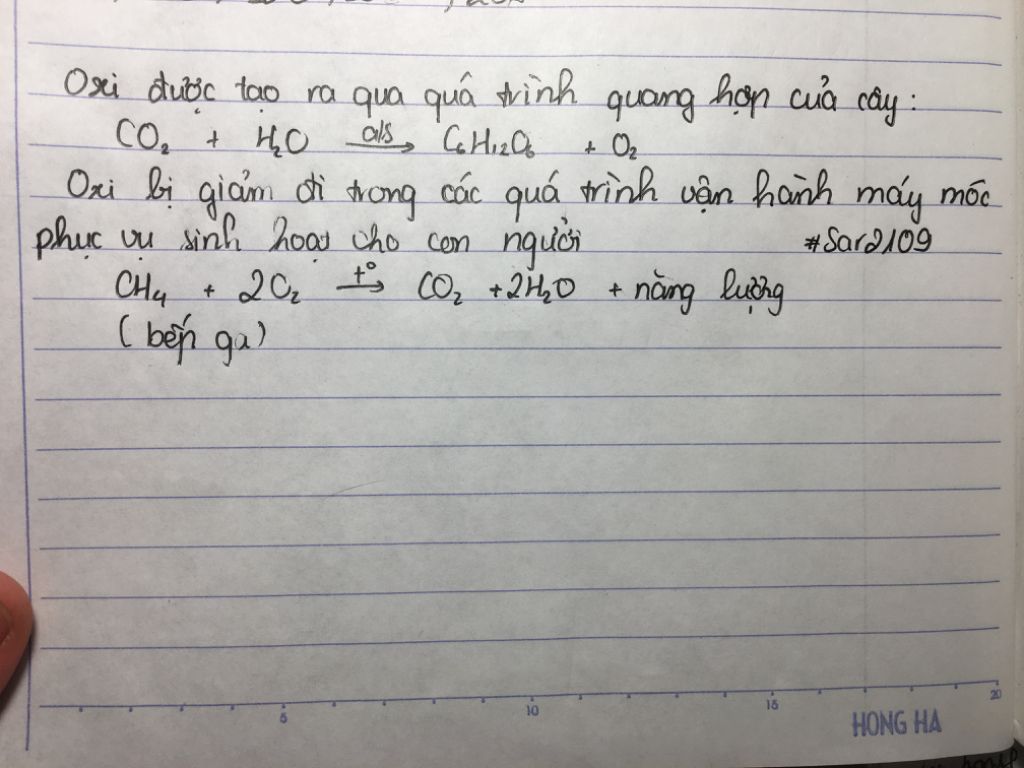 Oxi được tạo ra qua quá trình quang hợp của cây:
CO₂ + H₂O —a/s→ C₆H₁₂O₆ + O₂
Oxi bị giảm đi trong các quá trình vận hành máy móc
phục vụ sinh hoạt cho con người #Sar2109
CH₄ + 2O₂ —t°→ CO₂ + 2H₂O + năng lượng
(bếp ga)
5 10 15 20
HONG HA